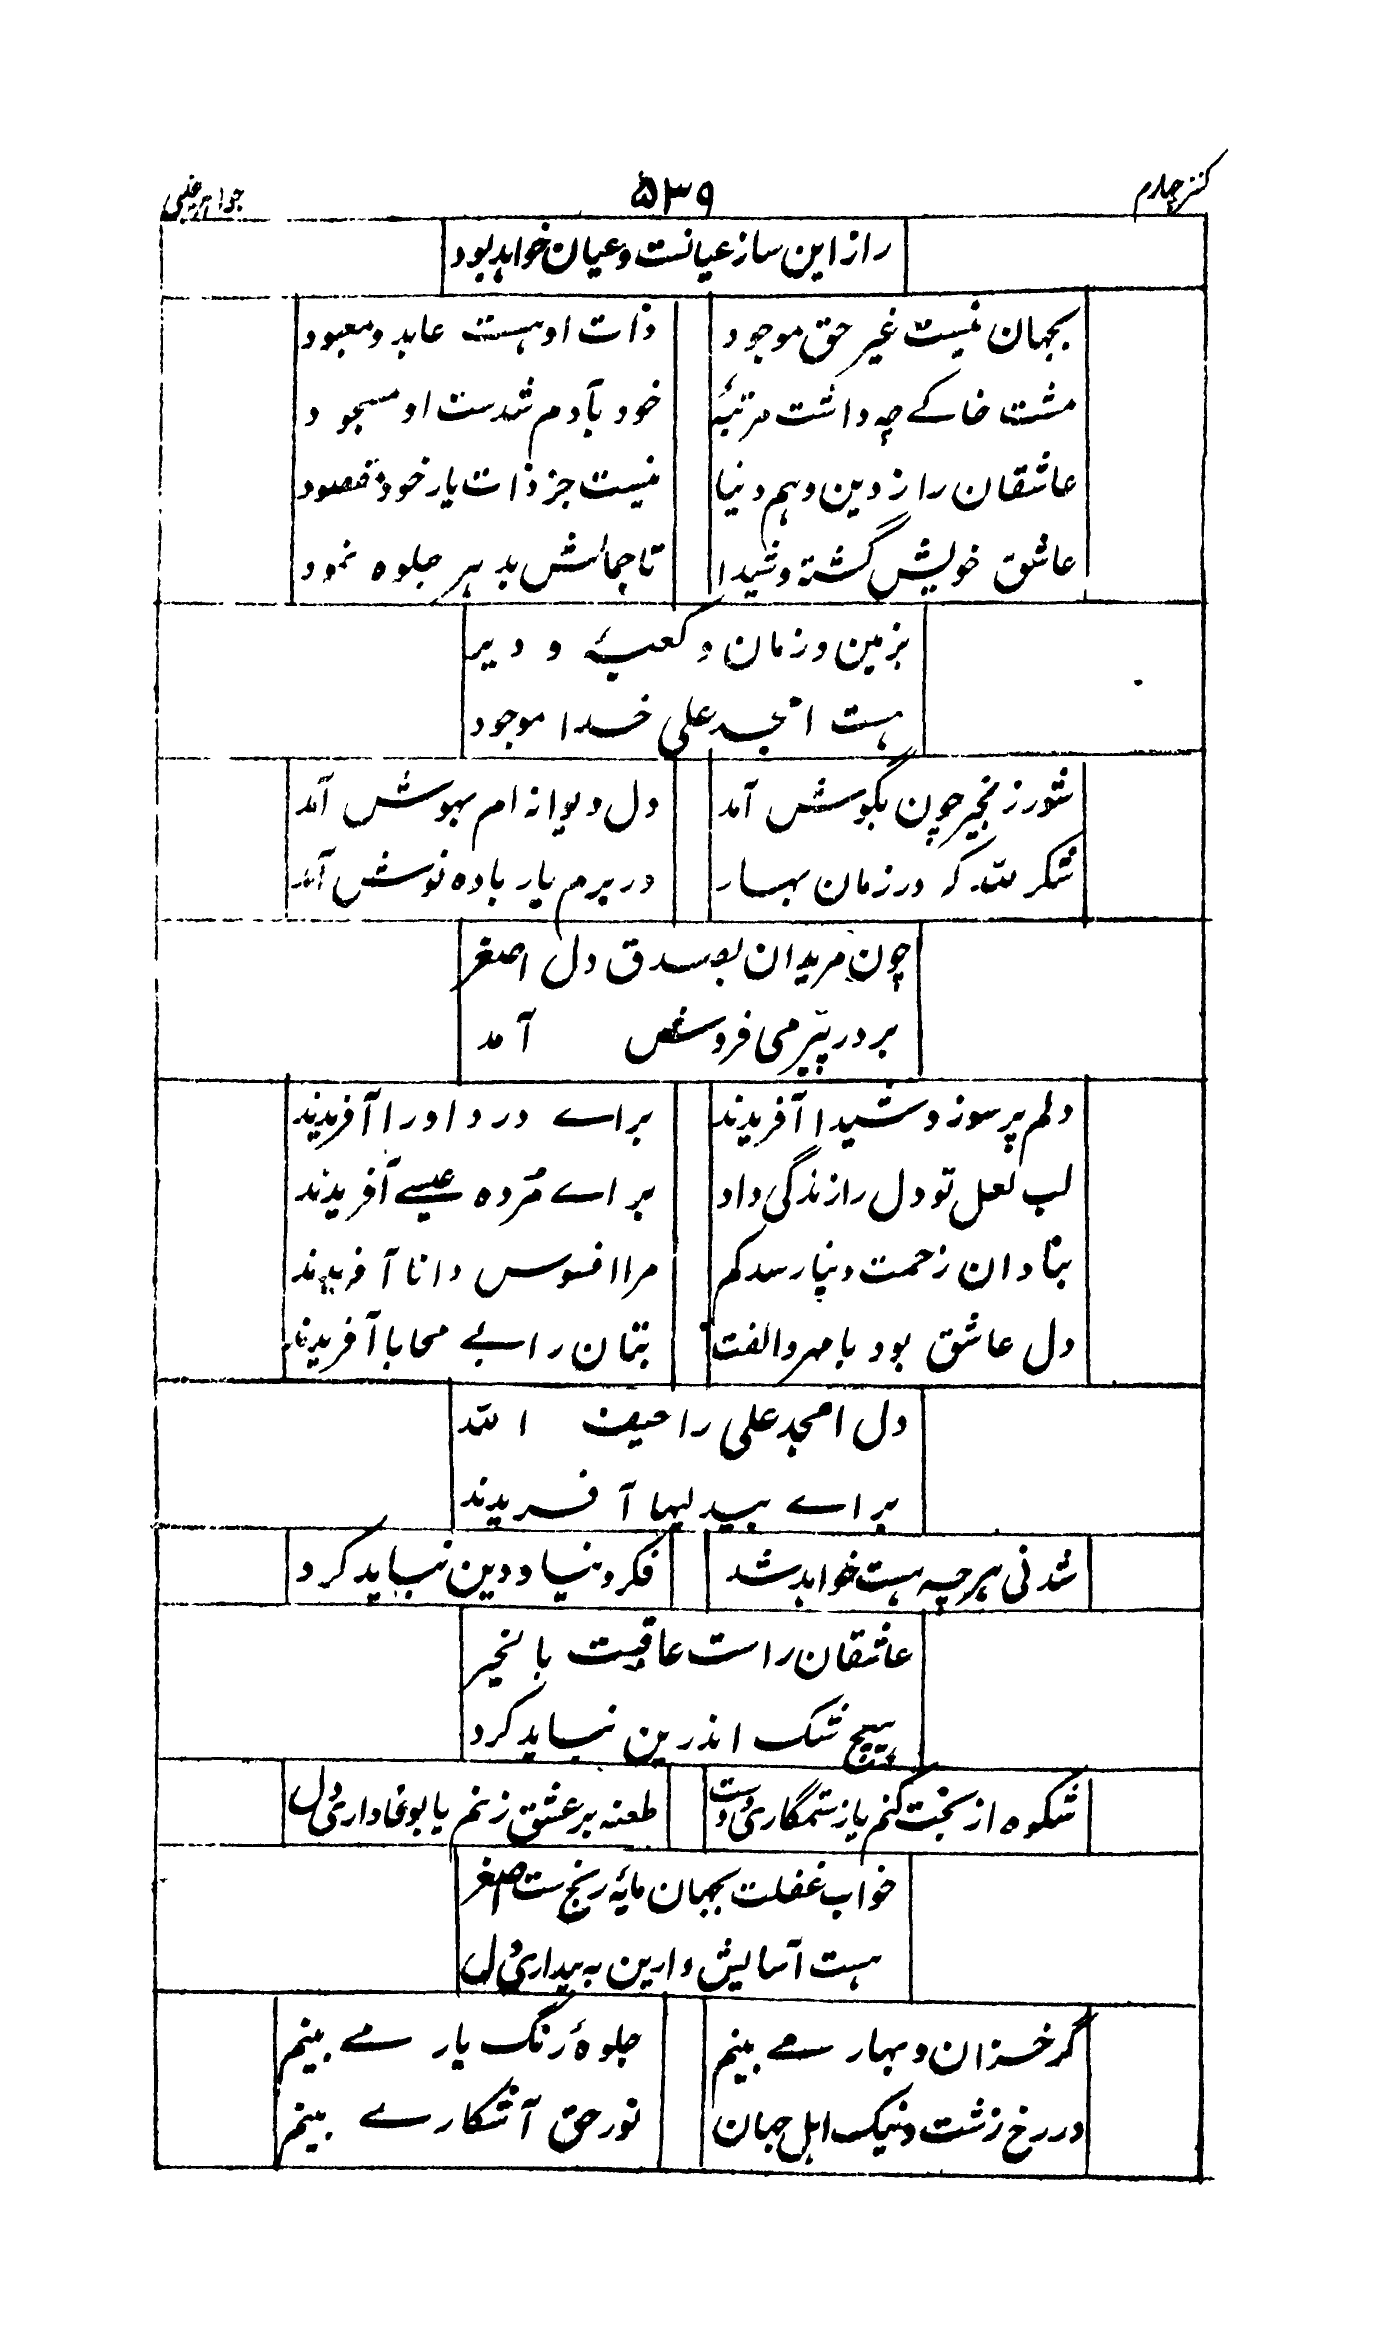 کنز چهارم
۵۳۹
جواهر غیبی
راز این ساز عیانست و عیان خواهد بود
بجهان نیست غیر حق موجود
ذات او هست عابد و معبود
مشت خاکے چه داشت مرتبهٔ
خود بآدم شدست او مسجود
عاشقان را ز دین و هم دنیا
نیست جز ذات یار خود مقصود
عاشق خویش گشته و شیدا
تا جمالش بدهر جلوه نمود
بزمین و زمان و کعبهٔ و دیر
هست امجد علی خدا موجود
شور زنجیر چون بگوش آمد
دل دیوانه ام بهوش آمد
شکر لله که در زمان بهار
در برم یار باده نوش آمد
چون مریدان بصدق دل اصغر
بر در پیر می فروش آمد
دلم پر سوز و شیدا آفریدند
براے درد او را آفریدند
لب لعل تو دل را زندگی داد
براے مرده عیسے آفریدند
بنادان زحمت دنیا رسد کم
مرا افسوس دانا آفریدند
دل عاشق بود با مهر و الفت
بتان را بے محابا آفریدند
دل امجد علی را حیف الله
براے بیدلیها آفریدند
شدنی هرچه هست خواهد شد
فکر دنیا و دین نباید کرد
عاشقان راست عاقبت بالخیر
هیچ شک اندرین نباید کرد
شکوه از بخت کنم یا ز ستمگاریٔ دوست
طعنه بر عشق زنم یا بوفاداریٔ دل
خواب غفلت بجهان مایهٔ رنج ست اصغر
هست آسایش دارین به بیداریٔ دل
گر خزان و بهار مے بینم
جلوهٔ رنگ یار مے بینم
در رخ زشت و نیک اهل جهان
نور حق آشکارے بینم